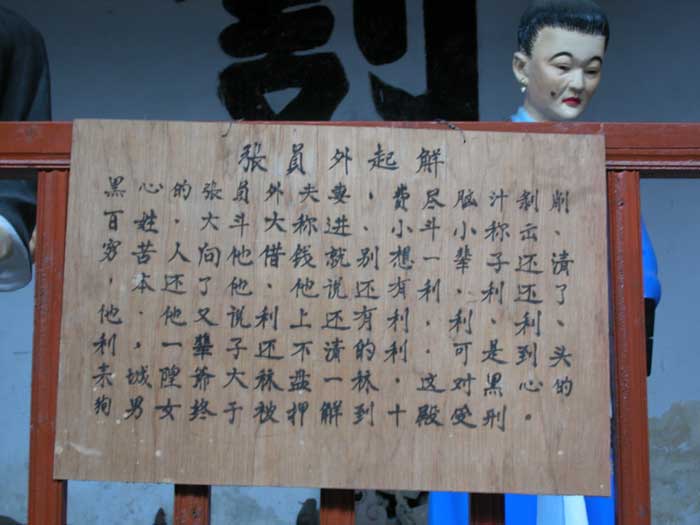 割
張員外起解
黑心的张員外夫妻，费尽脑汁剥削
百姓，大斗大称進、小斗小称出、
穷苦人向他借钱就别想一輩子还清
，本还了他，他说还有利、利还了、
他，他又说利上还有利，利、利、
利，一輩子还不清的利，可是到头
来城隍爷大秣盘一秣，这对黑心的
狗男女终于被押解到十殿受刑。